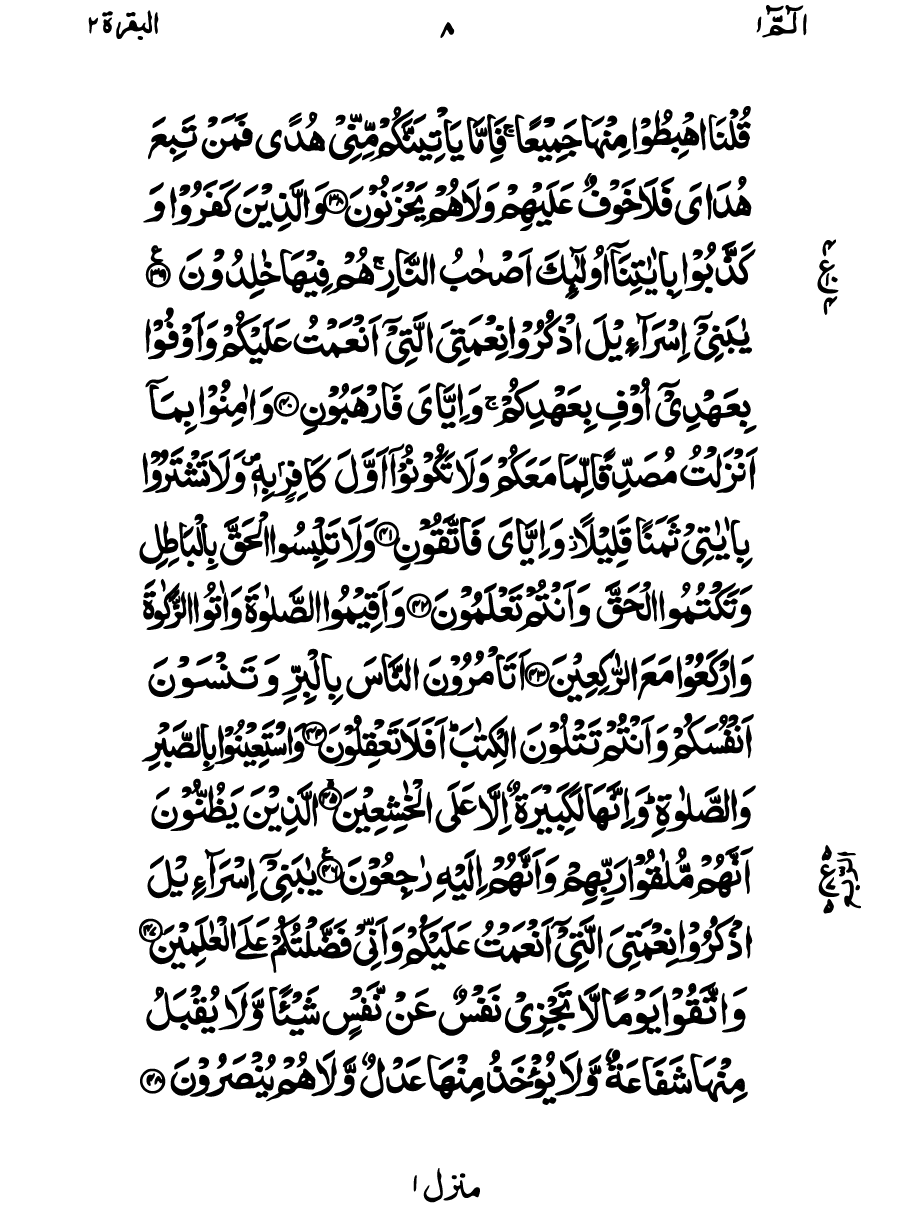 الٓمّٓ ١ ٨ البقرة ٢
قُلْنَا اهْبِطُوْا مِنْهَا جَمِيْعًا ۚ فَاِمَّا يَاْتِيَنَّكُمْ مِّنِّيْ هُدًى فَمَنْ تَبِعَ
هُدَايَ فَلَا خَوْفٌ عَلَيْهِمْ وَلَا هُمْ يَحْزَنُوْنَ ﴿٣٨﴾ وَالَّذِيْنَ كَفَرُوْا وَ
كَذَّبُوْا بِاٰيٰتِنَآ اُولٰٓئِكَ اَصْحٰبُ النَّارِ ۚ هُمْ فِيْهَا خٰلِدُوْنَ ﴿٣٩﴾ ع
٤ ع ١٠ ٤
يٰبَنِيْٓ اِسْرَآءِيْلَ اذْكُرُوْا نِعْمَتِيَ الَّتِيْٓ اَنْعَمْتُ عَلَيْكُمْ وَاَوْفُوْا
بِعَهْدِيْٓ اُوْفِ بِعَهْدِكُمْ ۚ وَاِيَّايَ فَارْهَبُوْنِ ﴿٤٠﴾ وَاٰمِنُوْا بِمَآ
اَنْزَلْتُ مُصَدِّقًا لِّمَا مَعَكُمْ وَلَا تَكُوْنُوْٓا اَوَّلَ كَافِرٍۭ بِهٖ ۪ وَلَا تَشْتَرُوْا
بِاٰيٰتِيْ ثَمَنًا قَلِيْلًا ؗ وَاِيَّايَ فَاتَّقُوْنِ ﴿٤١﴾ وَلَا تَلْبِسُوا الْحَقَّ بِالْبَاطِلِ
وَتَكْتُمُوا الْحَقَّ وَاَنْتُمْ تَعْلَمُوْنَ ﴿٤٢﴾ وَاَقِيْمُوا الصَّلٰوةَ وَاٰتُوا الزَّكٰوةَ
وَارْكَعُوْا مَعَ الرّٰكِعِيْنَ ﴿٤٣﴾ اَتَاْمُرُوْنَ النَّاسَ بِالْبِرِّ وَتَنْسَوْنَ
اَنْفُسَكُمْ وَاَنْتُمْ تَتْلُوْنَ الْكِتٰبَ ؕ اَفَلَا تَعْقِلُوْنَ ﴿٤٤﴾ وَاسْتَعِيْنُوْا بِالصَّبْرِ
وَالصَّلٰوةِ ؕ وَاِنَّهَا لَكَبِيْرَةٌ اِلَّا عَلَى الْخٰشِعِيْنَ ﴿٤٥﴾ الَّذِيْنَ يَظُنُّوْنَ
اَنَّهُمْ مُّلٰقُوْا رَبِّهِمْ وَاَنَّهُمْ اِلَيْهِ رٰجِعُوْنَ ﴿٤٦﴾ ع يٰبَنِيْٓ اِسْرَآءِيْلَ
اذْكُرُوْا نِعْمَتِيَ الَّتِيْٓ اَنْعَمْتُ عَلَيْكُمْ وَاَنِّيْ فَضَّلْتُكُمْ عَلَى الْعٰلَمِيْنَ ﴿٤٧﴾
وَاتَّقُوْا يَوْمًا لَّا تَجْزِيْ نَفْسٌ عَنْ نَّفْسٍ شَيْـًٔا وَّلَا يُقْبَلُ
مِنْهَا شَفَاعَةٌ وَّلَا يُؤْخَذُ مِنْهَا عَدْلٌ وَّلَا هُمْ يُنْصَرُوْنَ ﴿٤٨﴾
منزل ١